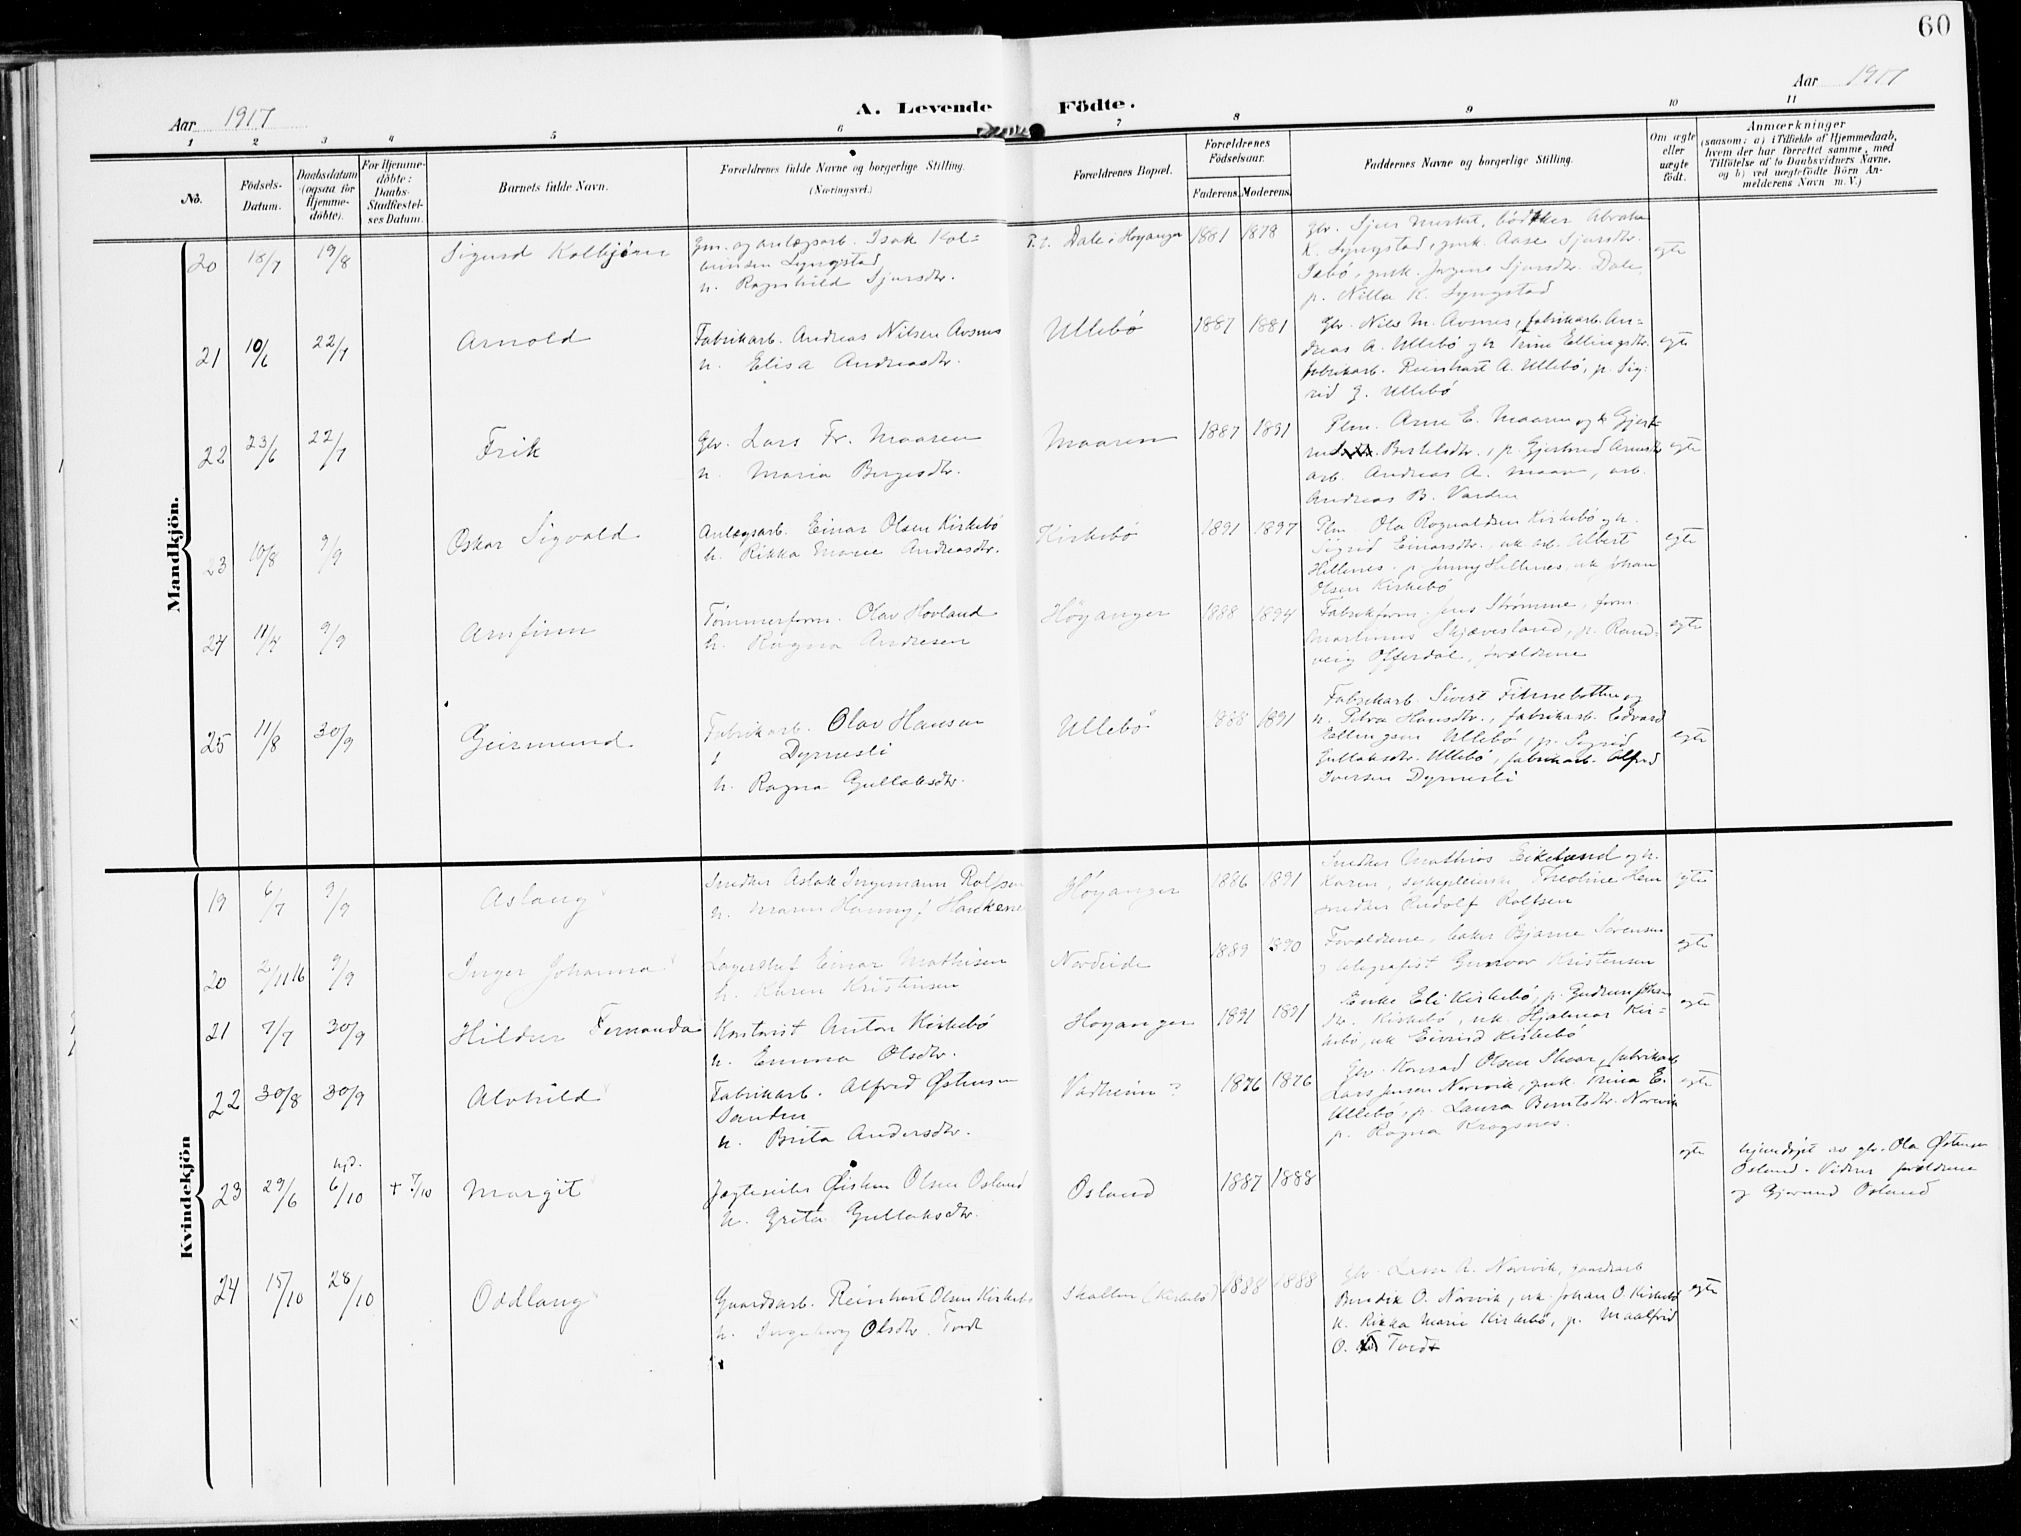 60
Aar 1917
A. Levende Födte.
Aar 1917
1 2 3 4 5 6 7 8 9 10 11
No.
Födsels-Datum.
Daabsdatum (ogsaa for Hjemme-döbte).
For Hjemme-döbte: Daabs-Stadfæstel-ses Datum.
Barnets fulde Navn.
Forældrenes fulde Navne og borgerlige Stilling. (Næringsvei.)
Forældrenes Bopæl.
Forældrenes Födselsaar.
Faderens. Moderens.
Faddernes Navne og borgerlige Stilling.
Om ægte eller uægte födt.
Anmærkninger
(saasom: a) i Tilfælde af Hjemmedaab, hvem der har forrettet samme, med Tilföielse af to Daabsvidners Navne, og b) ved uægtefödte Börn An-melderens Navn m. V.)
Mandkjön.
20 18/7 19/8 Sigurd Kolbjörn
Gm. og anlægsarb. Isak Kol-
beinsen Lyngstad
h. Ragnhild Sjursdtr.
P.t. Dale i Høyanger 1881 1878
K. Lyngstad, gmk. Aase Sjursdtr.
Tebö, gmk. Jørgine Sjursdtr. Dale,
p. Nilla K. Lyngstad
egte
21 10/6 22/7 Arnold
Fabrikarb. Andreas Nilsen Avsnes
h. Elisa Andreasdtr.
Ullebö 1887 1881
Gbr. Nils M. Avsnes, fabrikarb. An-
dreas A. Ullebö og h. Trine Ellingsdtr.
fabrikarb. Reinhart A. Ullebö, p. Sig-
rid G. Ullebö
egte
22 23/6 22/7 Frik
Gbr. Lars Fr. Maaren
h. Maria Børgesdtr.
Maaren 1887 1891
Plm. Arne E. Maaren og k. Gjert-
rud Bertelsdtr., p. Gjertrud Arnesdtr
arb. Andreas A. Maaren, arb.
Andreas B. Varden
egte
23 10/8 9/9 Oskar Sigvald
Anlægsarb. Einar Olsen Kirkebö
h. Rikka Marie Andreasdtr.
Kirkebö 1891 1897
Plm. Ola Rognaldsen Kirkebö og h.
Sigrid Einarsdtr., uk. arb. Albert
Hellenes, p. Jenny Hellenes, uk. Johan
Olsen Kirkebö
egte
24 11/4 9/9 Arnfinn
Tømmerform. Olav Hovland
h. Ragna Andresen
Höyanger 1888 1894
Fabrikform. Jens Strömme, form.
Martinus Skjævesland, p. Rand-
veig Offerdal, forældrene
egte
25 11/8 30/9 Geirmund
Fabrikarb. Olav Hansen
Dyrnesli
h. Ragna Gullaksdtr.
Ullebö 1888 1891
Fabrikarb. Sivert Finnebotten og
h. Petra Hansdtr., fabrikarb. Edvard
Ellingsen Ullebö, p. Sigrid
Gullaksdtr. Ullebö, fabrikarb. Alfred
Iversen Dyrnesli
egte
Kvindekjön
19 6/7 9/9 Aslaug
Snedker Aslak Ingemann Rolfsen
h. Maren Hanny
Höyanger 1886 1891
Snedker Mathias Eikeland og h.
Karen, sykepleierske Theoline Hem
snedker Rudolf Rolfsen
egte
20 2/11 16 9/9 Inger Johanna
Lagerchef Einar Mathisen
h. Karen Kristensen
Nordeide 1889 1890
Forældrene, baker Bjarne Sørensen
og telegrafist Gunvor Kristensen
egte
21 7/7 30/9 Hildur Fernanda
Kontorist Anton Kirkebö
h. Emma Olsdtr.
Höyanger 1891 1891
Enke Eli Kirkebö, p. Gudrun Johan
dtr. Kirkebö, uk. Hjalmar Kir-
kebö, uk. Eivind Kirkebö
egte
22 30/8 30/9 Alvhild
Fabrikarb. Alfred Østensen
Sanden
h. Brita Andersdtr.
Vadheim? 1876 1876
Gbr. Konrad Olsen Skaar, fabrikarb.
Lars Jensen Norevik, gmk. Trina E.
Ullebö, p. Laura Berntsdtr. Norevik
p. Ragna Krogsnes.
egte
23 29/6 hjd. 6/10 + 7/10 Margit
Jægteseiler Øistein Olsen Osland
h. Grita Gullaksdtr.
Osland 1887 1888
egte
hjemdøpt av gbr. Ola Østensen
Osland. Vidner forældrene
og Gjertrud Osland
24 15/10 28/10 Oddlaug
Gaardsarb. Reinhart Olsen Kirkebö
h. Ingeborg Olsdtr. Tvedt
Skallen (Kirkebö) 1888 1888
Gbr. Lars A. Norevik, gaardsarb
Bendik O. Norevik, uk. Johan O. Kirkebö
h. Rikka Marie Kirkebö, p. Maalfrid
O. Tvedt
egte